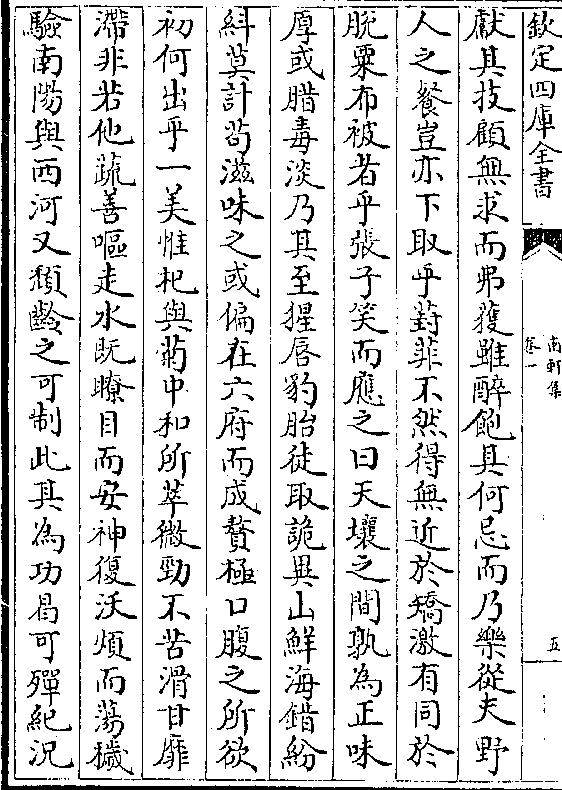 欽定四庫全書
南軒集
卷一
五
獻其技顧無求而弗獲雖醉飽其何忌而乃樂從夫野
人之餐豈亦下取乎葑菲不然得無近於矯激有同於
脫粟布被者乎張子笑而應之曰天壤之間孰為正味
厚或腊毒淡乃其至猩唇豹胎徒取詭異山鮮海錯紛
糾莫計茍滋味之或偏在六府而成贅極口腹之所欲
初何出乎一美惟杞與菊中和所萃微勁不苦滑甘靡
滯非若他蔬善嘔走水既瞭目而安神復沃煩而蕩穢
驗南陽與西河又頽齡之可制此其為功曷可殫紀況